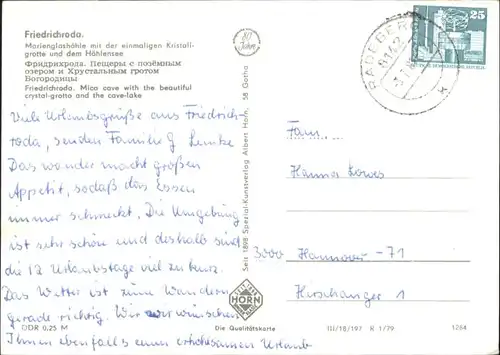 Friedrichroda.
Marienglashöhle mit der einmaligen Kristall-
grotte und dem Höhlensee
Фридрихрода. Пещеры с поэёмным
озером и Хрустальным гротом
Вогородицы
Friedrichroda. Mica cave with the beautiful
crystal-grotto and the cave-lake
Viele Urlaubsgrüße aus Friedrich-
roda, senden Familie G. Lemke
Das wandern macht großen
Appetit, sodaß das Essen
immer schmeckt. Die Umgebung
ist sehr schön und deshalb sind
die 12 Urlaubstage viel zu kurz.
Das Wetter ist zum Wandern
gerade richtig. Wir wünschen
Ihnen ebenfalls einen erholsamen Urlaub
DDR 0,25 M
80
Jahre
Seit 1898 Spezial-Kunstverlag Albert Horn, 58 Gotha
HORN
Die Qualitätskarte
25
RADEBERG
8142
Fam.
Hanna Lowes
3000 Hannover-71
Hirschanger 1
III/18/197 K 1/79
1264